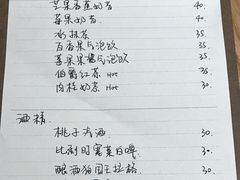 苹果香蕉奶昔 40.
莓果奶昔 40.
冰抹茶 35.
百香果气泡饮 35.
莓果果酱气泡饮 35.
伯爵红茶 Hot 35.
肉桂奶茶 Hot 30.
酒精
桃子汽酒 30.
比利时蜜桃白啤 30.
醒酒狗国王拉格 30.